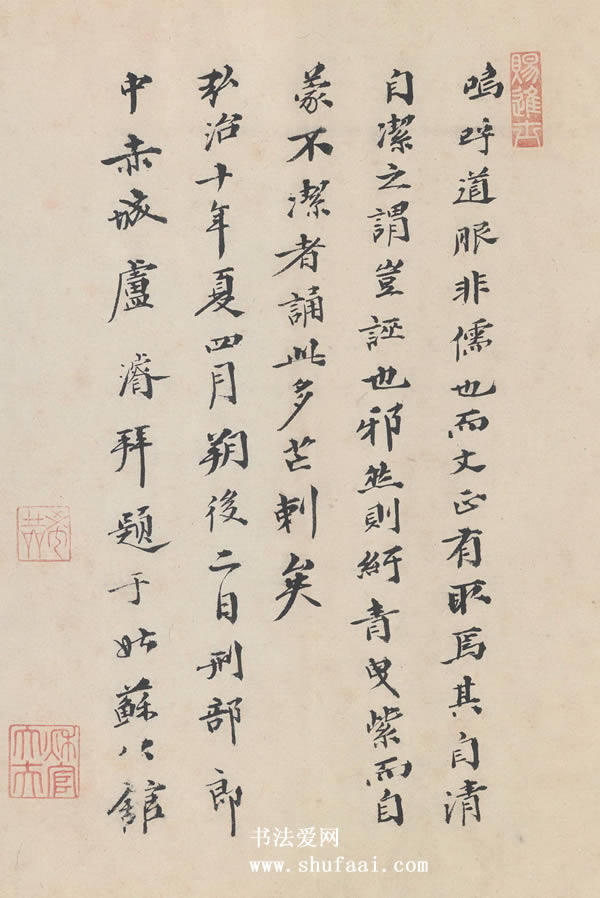 賜進士
嗚呼道服非儒也而文正有取焉其自清
自潔之謂豈誣也邪然則紆青曳紫而自
蒙不潔者誦此多芒刺矣
弘治十年夏四月朔後二日刑部郎
中赤城盧濬拜題于姑蘇公館
希喆
秋官大夫
书法爱网
www.shufaai.com